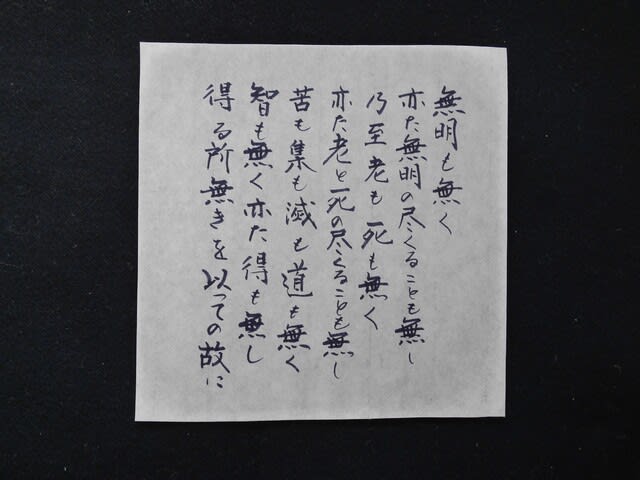 無明も無く
亦た無明の尽くることも無し
乃至老も死も無く
亦た老と死の尽くることも無し
苦も集も滅も道も無く
智も無く亦た得も無し
得る所無きを以っての故に